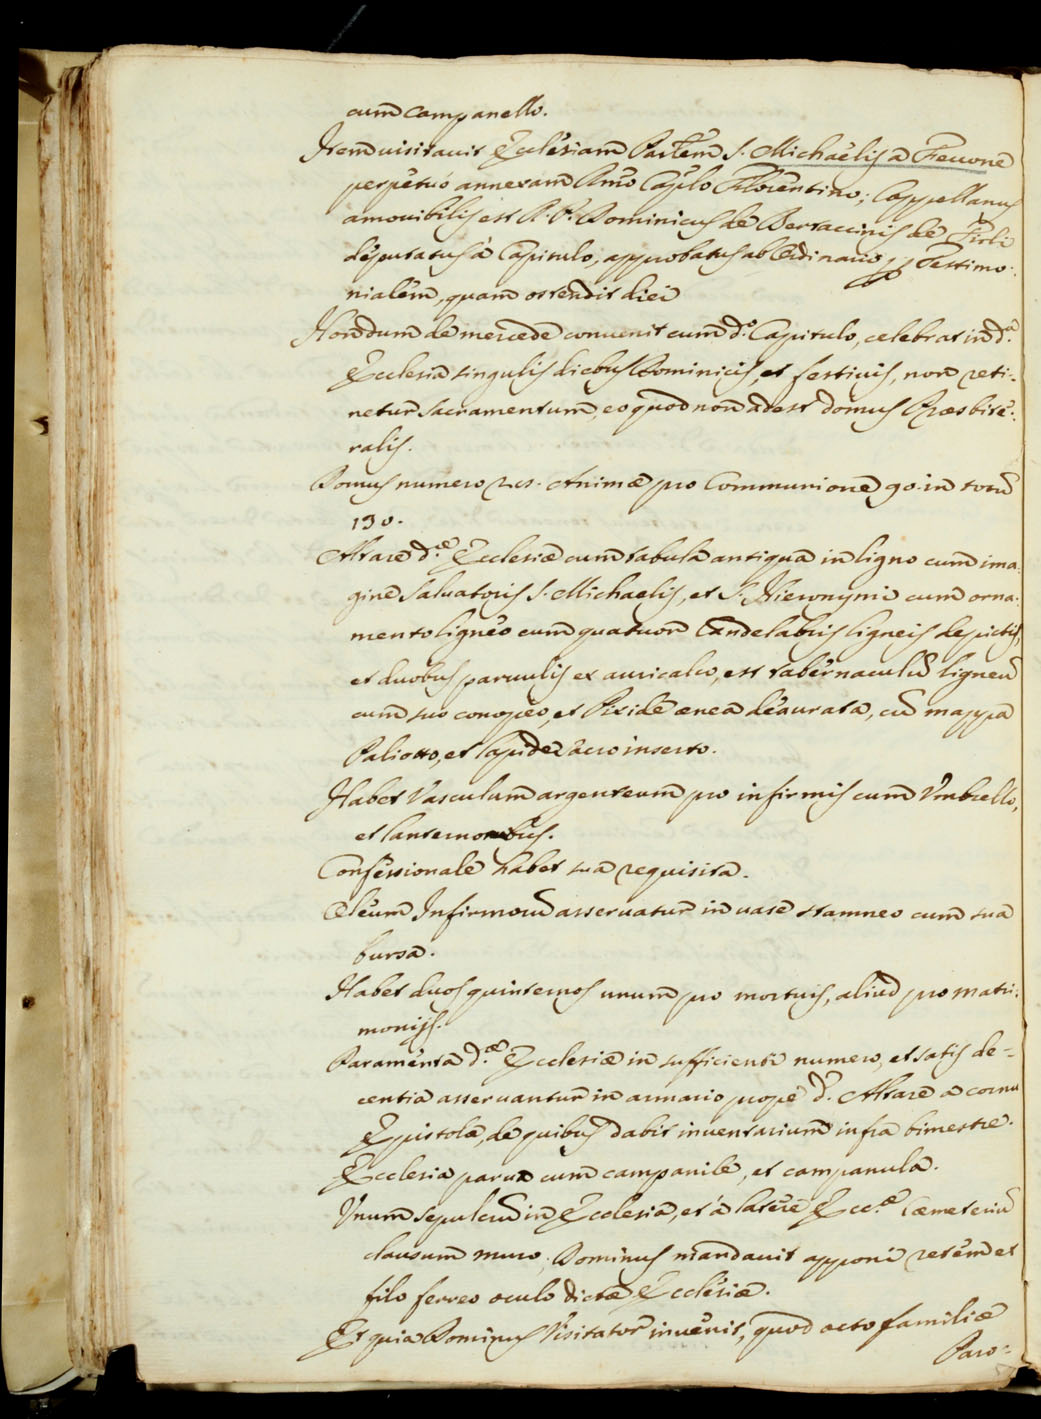 cum Campanello.
Item uisitauit Ecclesiam Par.lem S. Michaelis a
perpetuò annexam Cap.lo Florentino; Cappellanus
amouibilis est P. Dominicus de Bertaccinis de
deputatus à Capitulo, approbatus ab Ordinario Testimo:
nialem, quam ostendit diei
Non dum de mercede conuenit cum d.o Capitulo, celebrat in d.a
Ecclesia singulis diebus Dominicis, et festiuis, non reti:
netur Sacramentum, eo quod non adest domus Præsbite:
ralis.
Domus numero Animæ pro Communione 90. in totu
130.
Altare d.æ Ecclesiæ cum tabula antiqua in ligno cum ima:
gine Saluatoris S. Michaelis, et S. Hieronymi cum orna:
mento ligneo cum quatuor Candelabris ligneis depictis,
et duobus paruulis ex auricalco, est tabernaculu ligneu
cum suo conopeo, et Pixide ænea deaurata, cu mappa
Paliotto, et lapide sacro inserto.
Habet Vasculum argenteum pro infirmis cum Vmbrello,
et lanternonibus.
Confessionale habet sua requisita.
Oleum Infirmoru asseruatur in uase stamneo cum sua
bursa.
Habet duos quinternos unum pro mortuis, aliud pro matri:
monijs.
Paramenta d.æ Ecclesiæ in sufficienti numero, et satis de=
centia asseruantur in armario prope d. Altare a cornu
Epistolæ, de quibus dabit inuentarium infra bimestre.
Ecclesia parua cum campanile, et campanula.
Vnum sepulcru in Ecclesia, et à latere Ecc.æ Cæmeteriu
clausum muro. Dominus mandauit apponi retem et
filo ferreo oculo dictæ Ecclesiæ.
Et quia Dominus Visitator inuenit, quod octo familiæ
Paro=